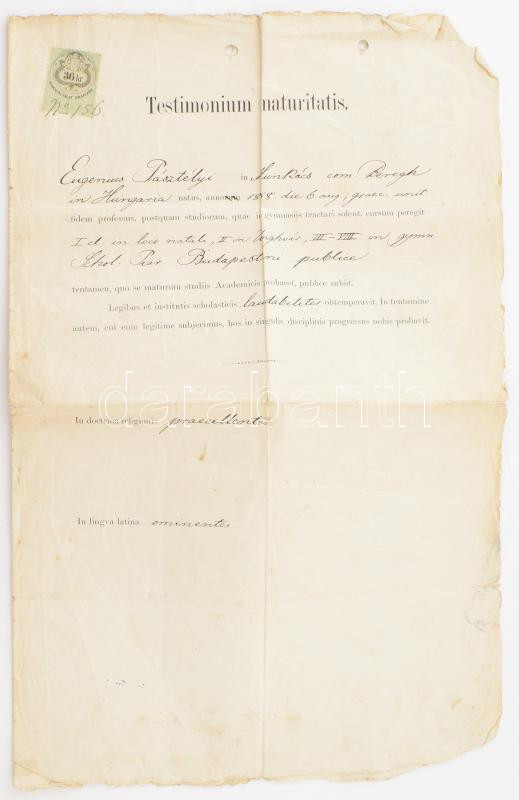 36 kr.
No 156.
Testimonium maturitatis.
Eugenius Pásztélyi in Munkács com. Beregh
in Hungaria natus, anno 1858 die 6 aug; graec. unit
fidem professus, postquam studiorum, quae in gymnasiis tractari solent, cursum peregit
I et in loco natali, II in Unghvár, III-VIII in gymn
Schol. Piar Budapestini publice
tentamen, quo se maturum studiis Academicis probaret, publice subiit.
Legibus et institutis scholasticis laudabiliter obtemperavit. In tentamine
autem, cui eum legitime subjecimus, hos in singulis disciplinis progressus nobis probavit.
darabanth
In doctrina religionis praecellentes
In lingva latina eminentes